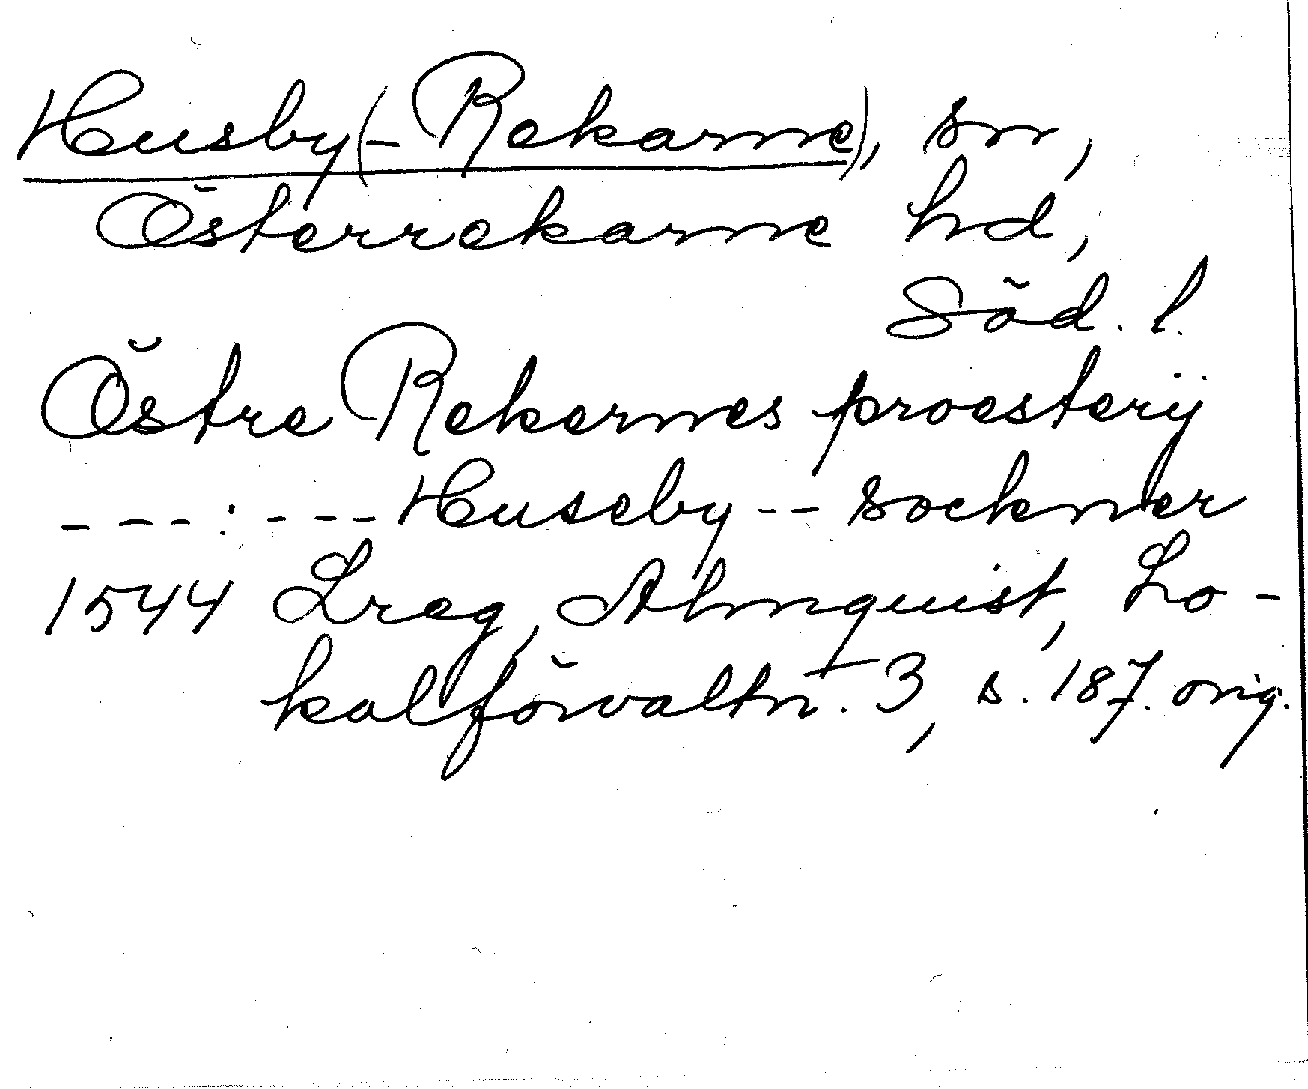 Husby(-Rekarne), sn,
Österrekarne hd,
Söd. l.
Östre Rekernes proesterij
---:---Huseby--sockner
1544 Lreg, Almquist, Lo-
kalförvaltn. 3, s. 187. orig.